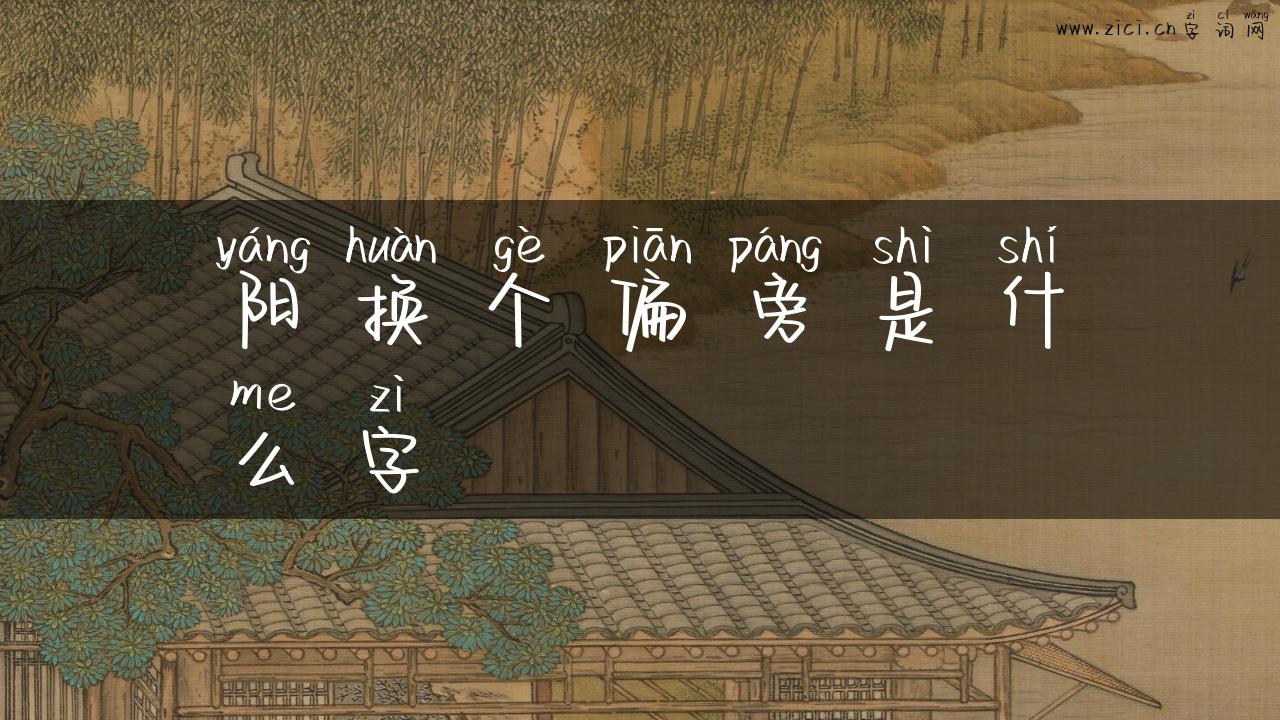 zì cí wǎng
www.zici.cn 字 词 网
yáng huàn gè piān páng shì shí
阳 换 个 偏 旁 是 什
me zì
么 字